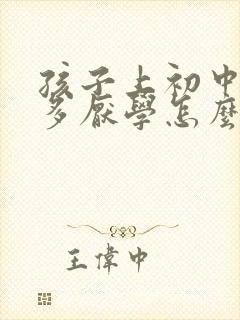 孩子上初中
多厭學怎麼
王偉中